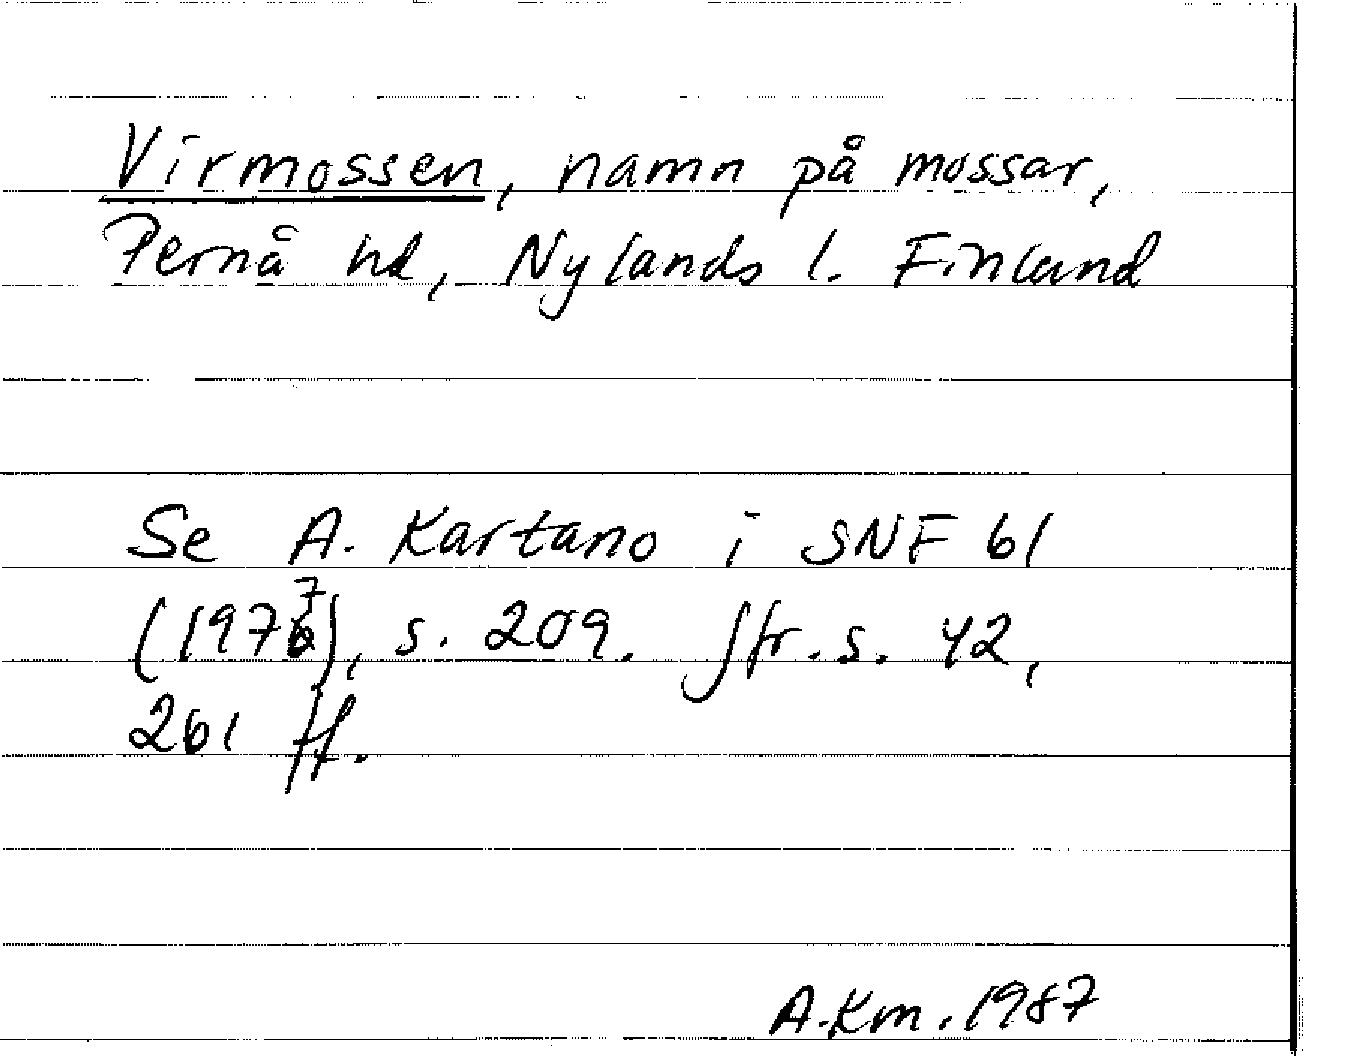 Virmossen, namn på mossar,
Pernå hd, Nylands l. Finland
Se A. Kartano i SNF 61
(1977), s. 209. Jfr. s. 42,
261 ff.
A.Km. 1987